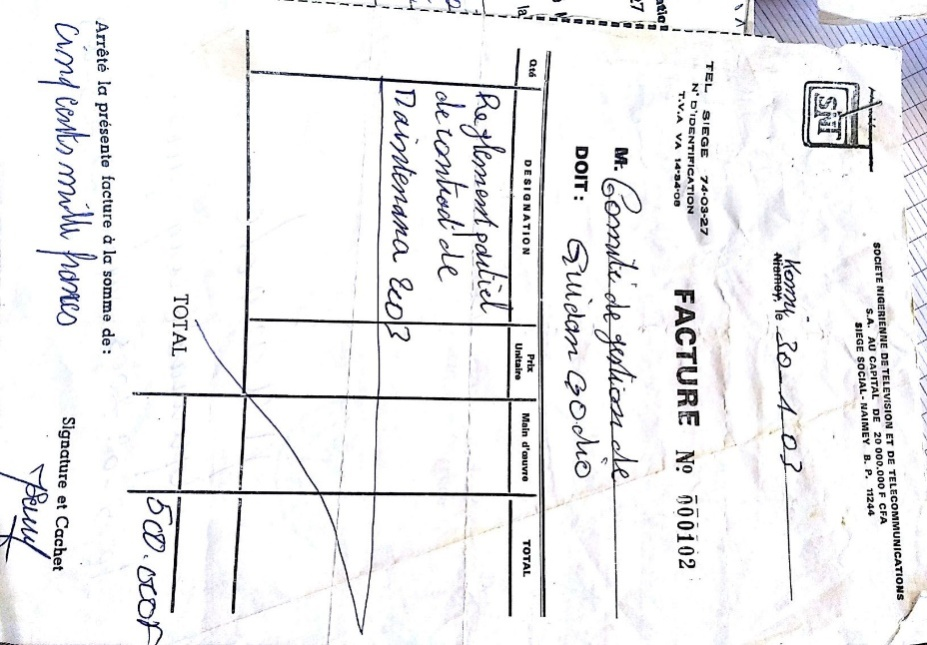 SNT
SOCIETE NIGERIENNE DE TELEVISION ET DE TELECOMMUNICATIONS
S.A. AU CAPITAL DE 20 000.000 F CFA
SIEGE SOCIAL - NAIMEY B. P. 11244
Konni
Niamey, le 30 - 1 03
TEL SIEGE 74-03-27
N° D'IDENTIFICATION
T.V.A VA 14-84-08
FACTURE No 000102
M. Comité de gestion de
DOIT: Guidan
Qté DESIGNATION Prix Unitaire Main d'œuvre TOTAL
Reglement partiel
de contrat de
2003
TOTAL 500.000F
Arrêté la présente facture à la somme de:
Cinq cents mille francs
Signature et Cachet